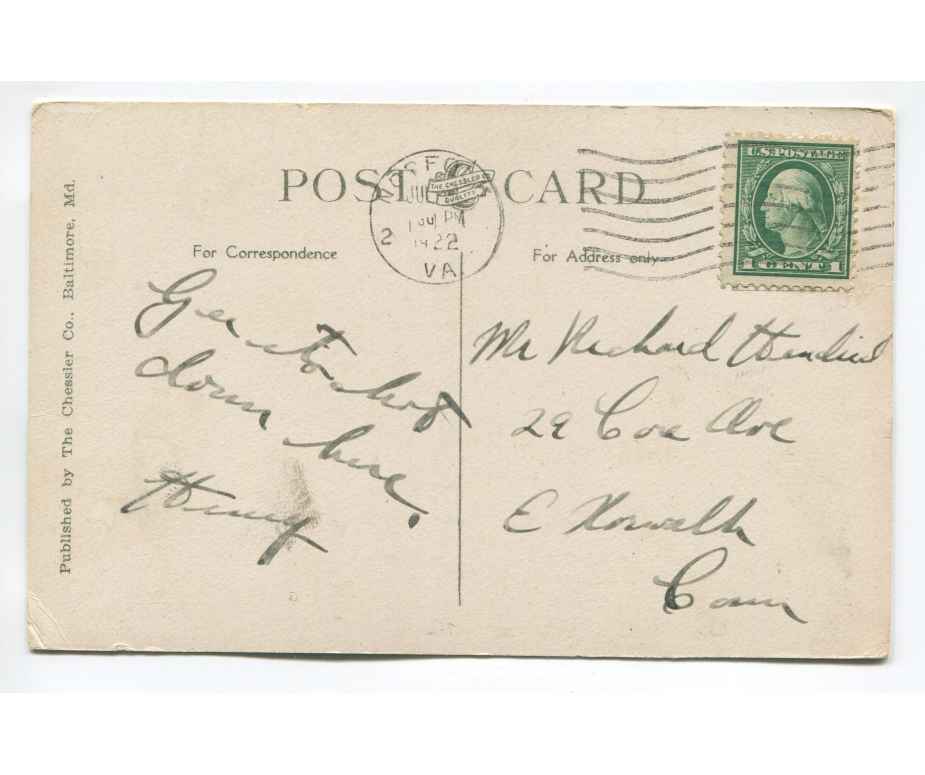 POST CARD
THE CHESSLER CO.
QUALITY
JUL
PM
1922
2
VA.
U.S. POSTAGE
1 CENT 1
For Correspondence
For Address only
Gee its hot
down here.
Henry
Mr Richard
29 Coe Ave
E Norwalk
Conn
Published by The Chessler Co., Baltimore, Md.